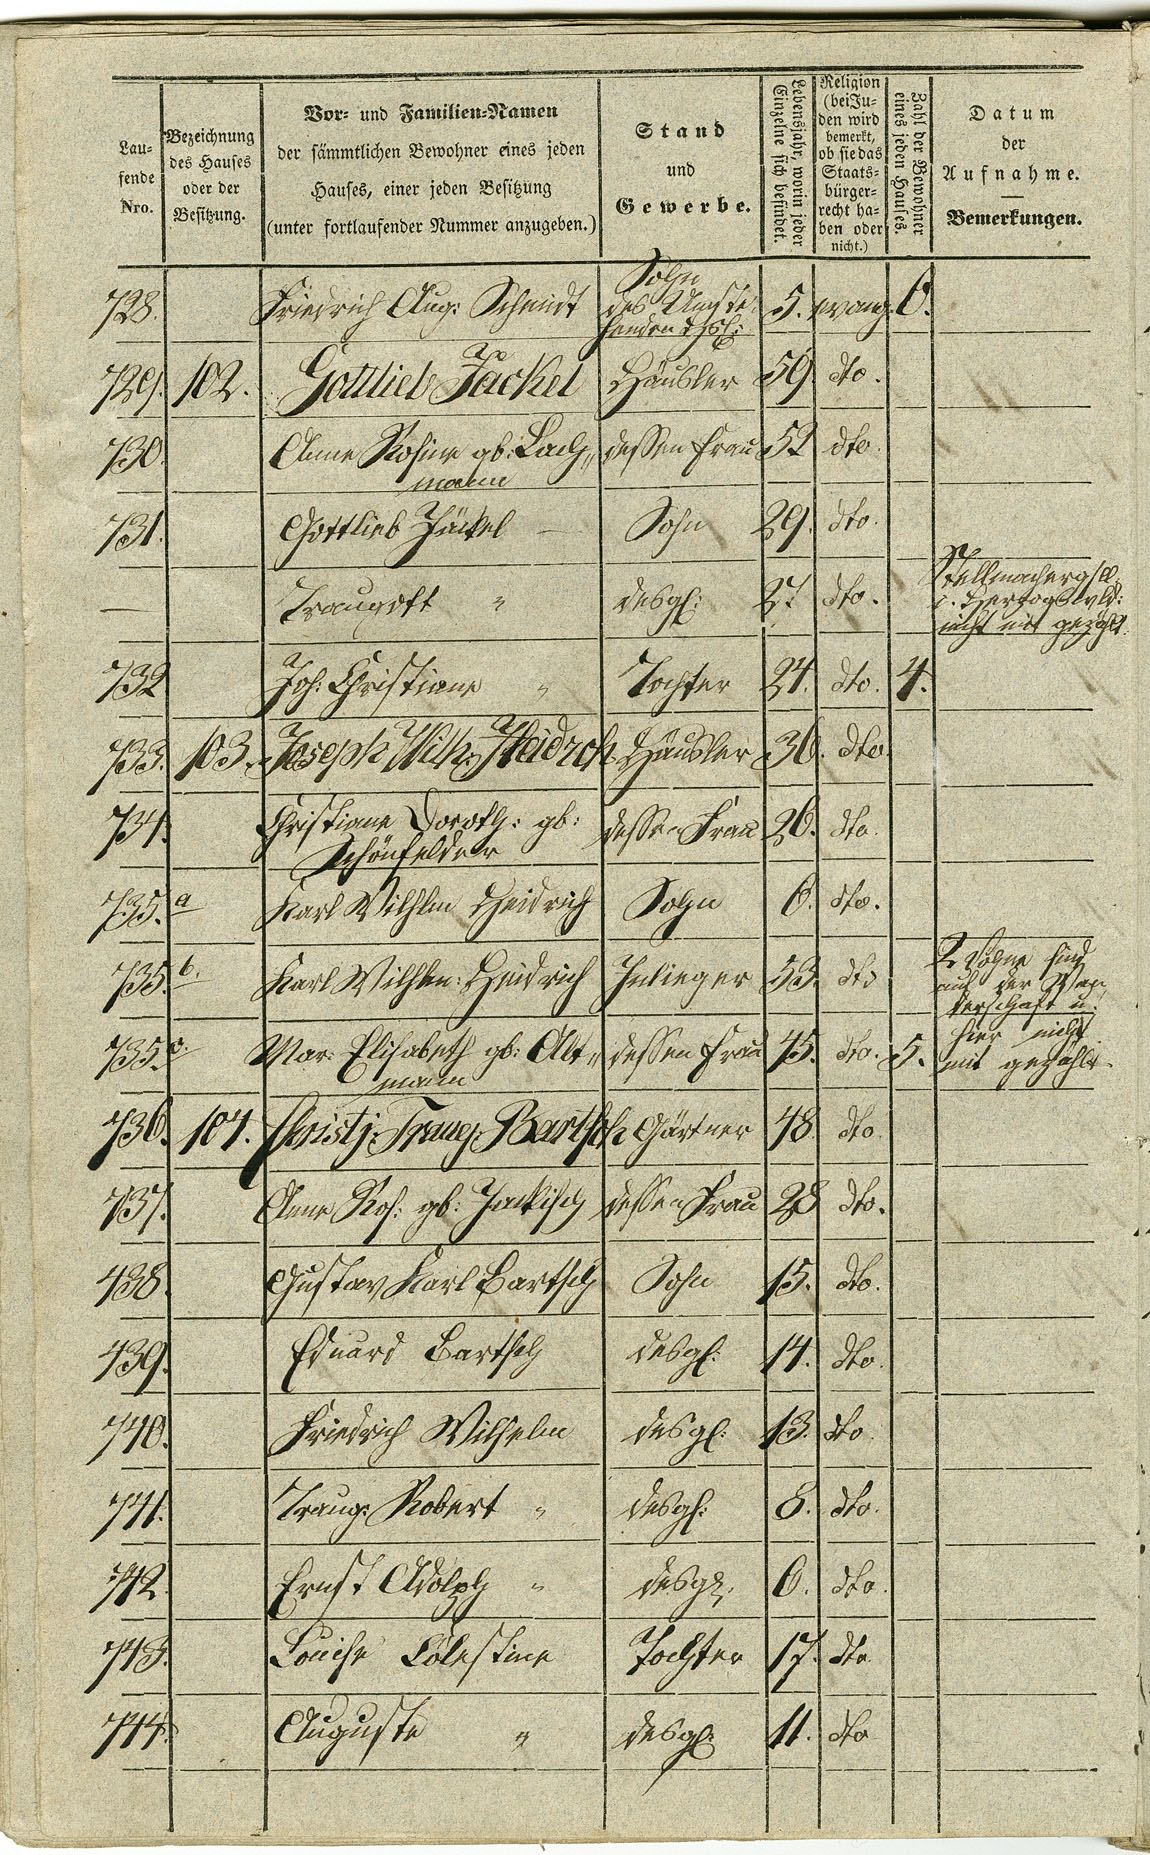 Lau-
fende
Nro.
Bezeichnung
des Hauses
oder der
Besitzung.
Vor- und Familien-Namen
der sämmtlichen Bewohner eines jeden
Hauses, einer jeden Besitzung
(unter fortlaufender Nummer anzugeben.)
Stand
und
Gewerbe.
Lebensjahr, worin jeder
Einzelne sich befindet.
Religion
(bei Ju-
den wird
bemerkt,
ob sie das
Staats-
bürger-
recht ha-
ben oder
nicht.)
Zahl der Bewohner
eines jeden Hauses.
Datum
der
Aufnahme.
Bemerkungen.
728. Friedrich Aug: Schmidt Sohn 5. evang. 6.
des
729. 102. Gottlieb Jäckel Häusler 59. dto.
730. Anne Rosine gb: Lach„ dessen Frau 52 dto.
mann
731. Gottlieb Jäckel — Sohn 29. dto.
— Traugott „ desgl: 27. dto. Stellmachergsll.
nicht mit gezählt.
732 Joh: Christiane „ Tochter 24. dto. 4.
733. 103. Joseph Wilh: Heidrich Häusler 30. dto.
734. Christiane Doroth: gb: dessen Frau 26. dto.
Schönfelder
735. a Karl Wilhlm Heidrich Sohn 6. dto.
735. b. Karl Wilhlm: Heidrich Inlieger 53. dto 2 Söhne sind
auf der Wan„
derschaft u.
735. c. Mar: Elisabeth gb: Alt„ dessen Frau 45. dto. 5. hier nicht
mann mit gezählt.
736. 104. Christ: Traug: Bartsch Gärtner 48. dto
737. Anne Ros: gb: Jackisch dessen Frau 28 dto.
738. Gustav Karl Bartsch Sohn 15. dto.
739. Eduard Bartsch desgl: 14. dto.
740. Friedrich Wilhelm desgl: 13. dto.
741. Traug: Robert „ desgl: 8. dto.
742. Ernst Adolph „ desgl. 6. dto.
743. Louise Cölestine Tochter 17. dto
744. Auguste „ desgl: 11. dto